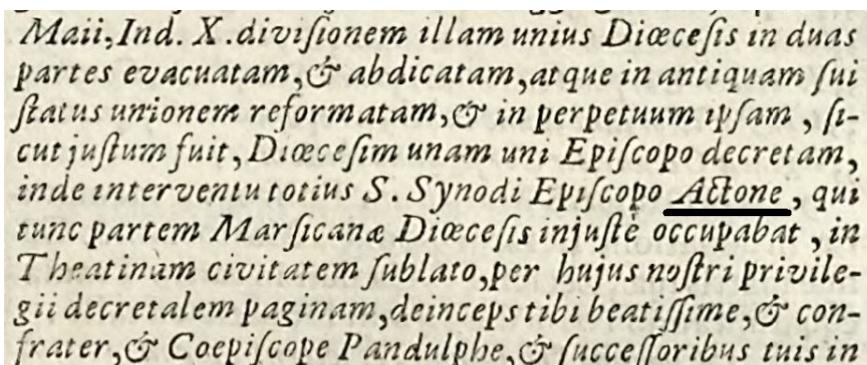 Maii, Ind. X. diviſionem illam unius Diœceſis in duas
partes evacuatam, & abdicatam, atque in antiquam ſui
ſtatus unionem reformatam, & in perpetuum ipſam, ſi-
cut juſtum fuit, Diœceſim unam uni Epiſcopo decretam,
inde interventu totius S. Synodi Epiſcopo Actone, qui
tunc partem Marſicanæ Diœceſis injuſtè occupabat, in
Theatinam civitatem ſublato, per hujus noſtri privile-
gii decretalem paginam, deinceps tibi beatiſſime, & con-
frater, & Coepiſcope Pandulphe, & ſucceſſoribus tuis in